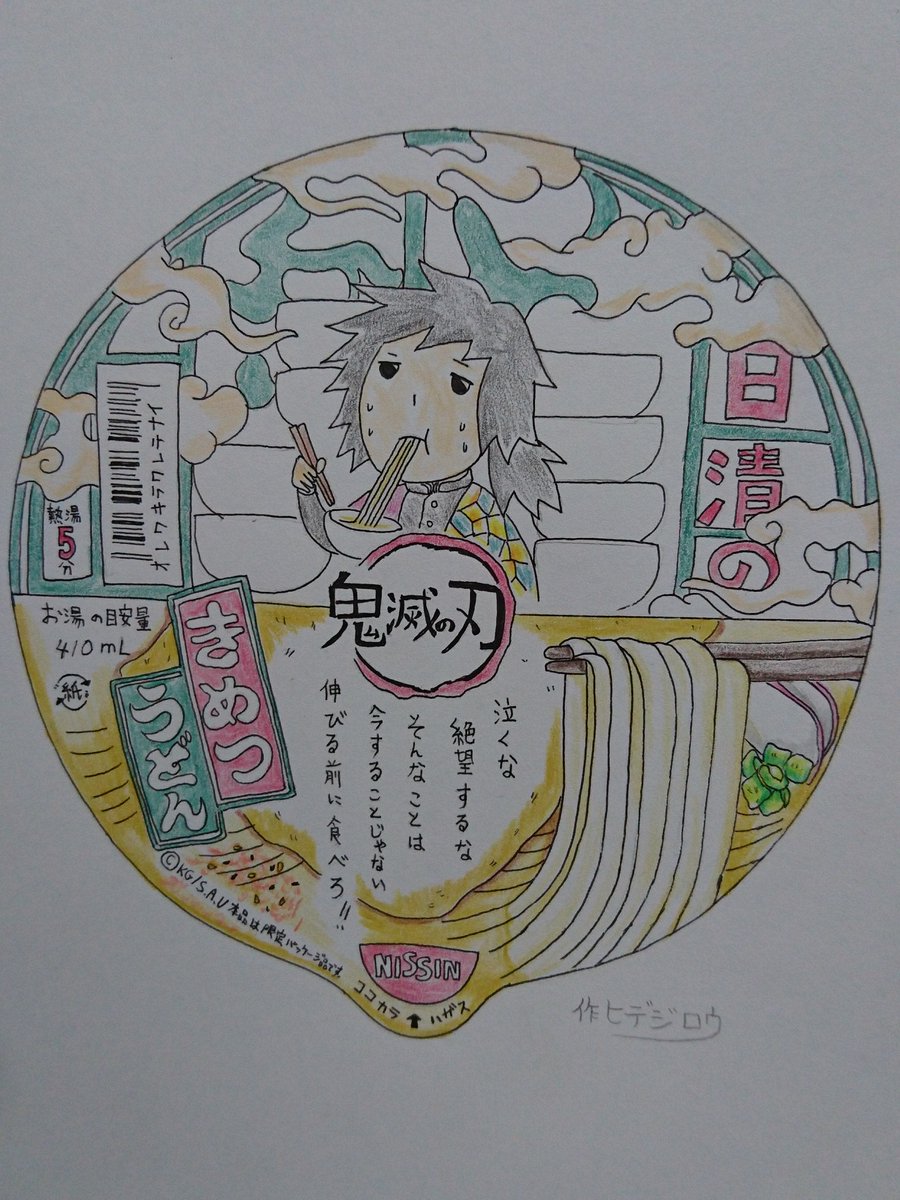 日清の
オレワキラワレテナイ
熱湯
5
分
お湯の目安量
410mL
紙
きめつ
うどん
鬼滅の刃
泣くな
絶望するな
そんなことは
今することじゃない
伸びる前に食べろ!!
©KG/S.A.U 本品は限定パッケージ品です。
NISSIN
ココカラ↑ハガス
作ヒデジロウ